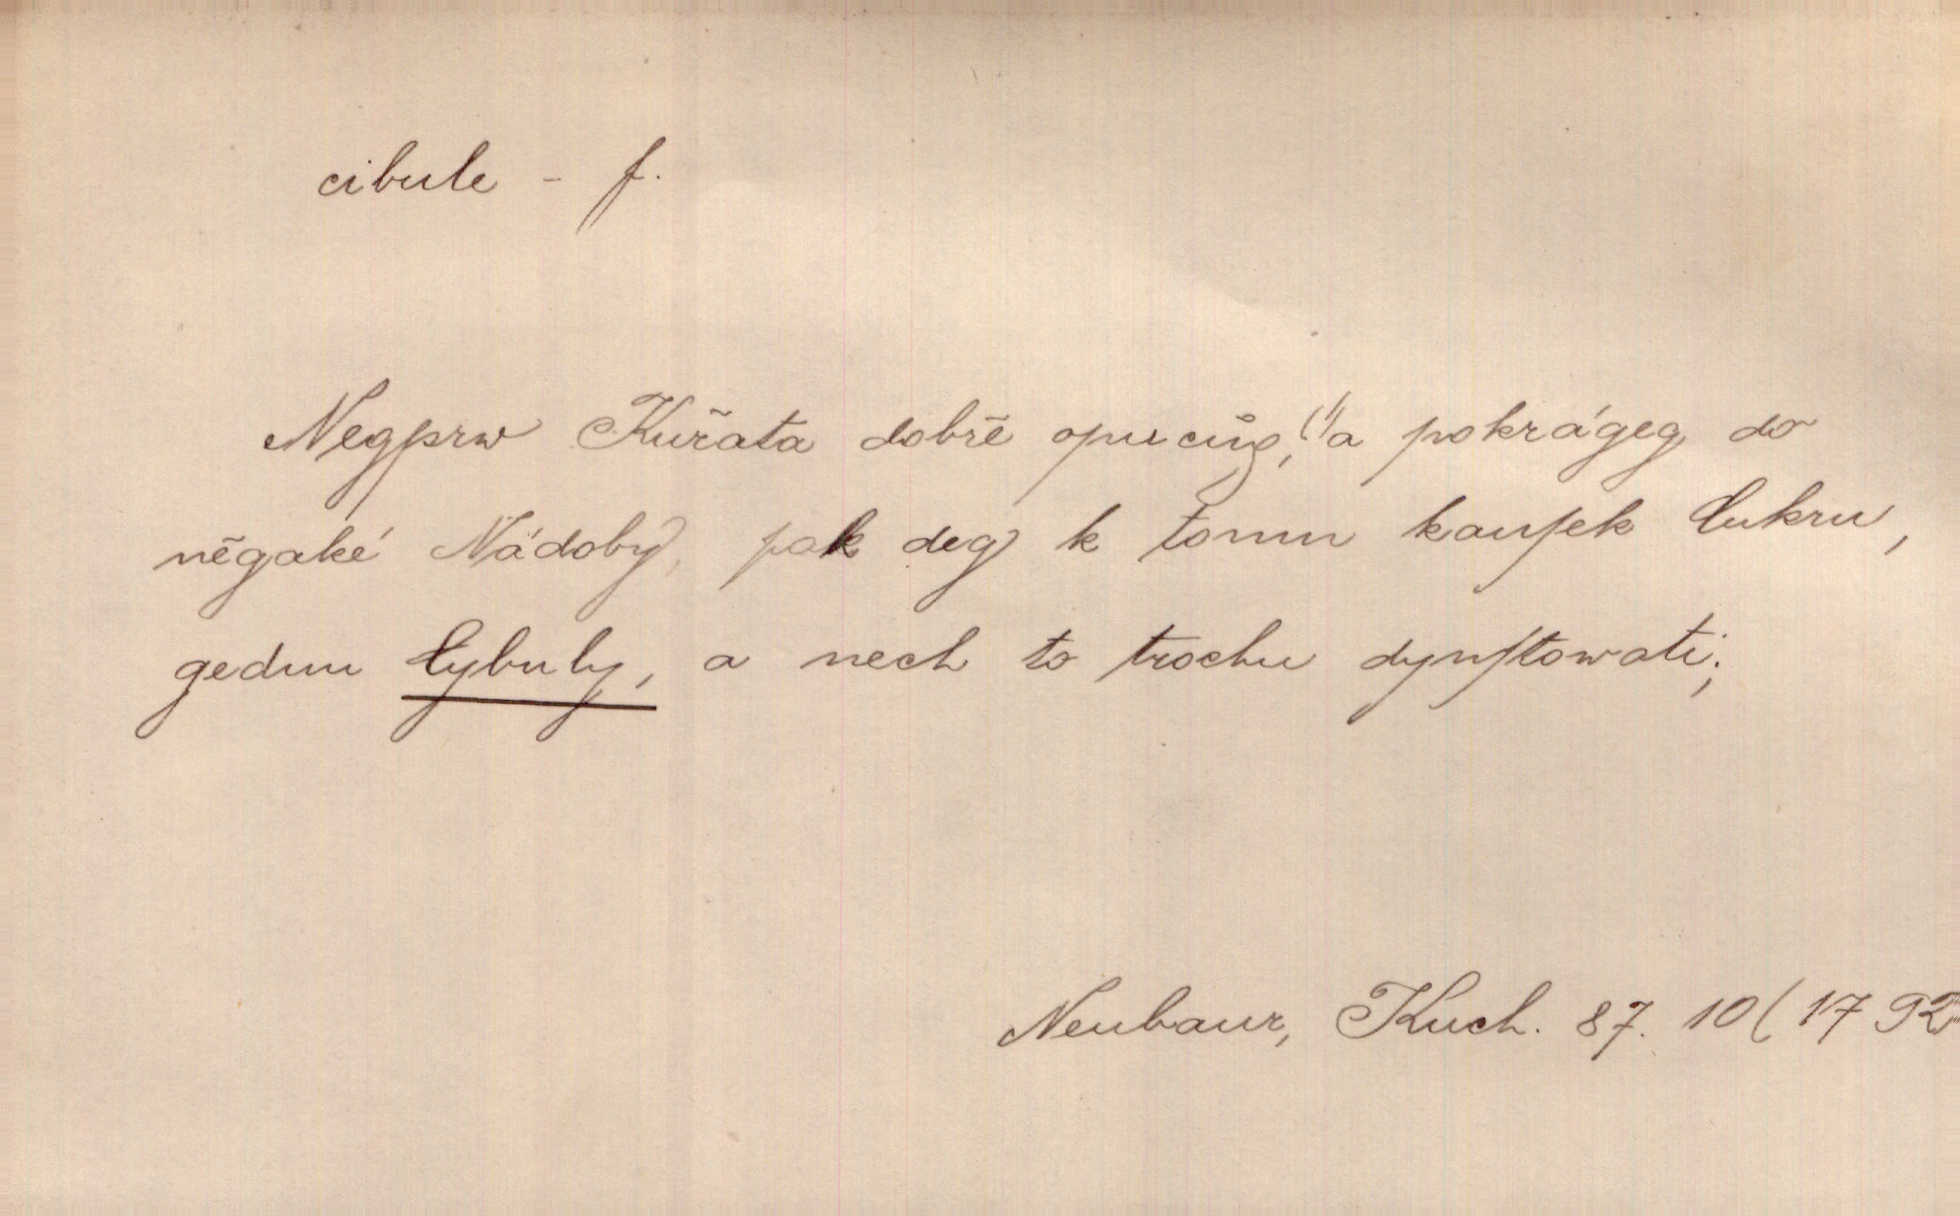 cibule - f.
Negprw Kuřata dobře opucůg, (!) a pokrágeg do
něgaké Nádoby, pak deg k tomu kauſek Cukru,
gednu Cybuly, a nech to trochu dynſtowati;
Neubaur, Kuch. 87. 10 (1792